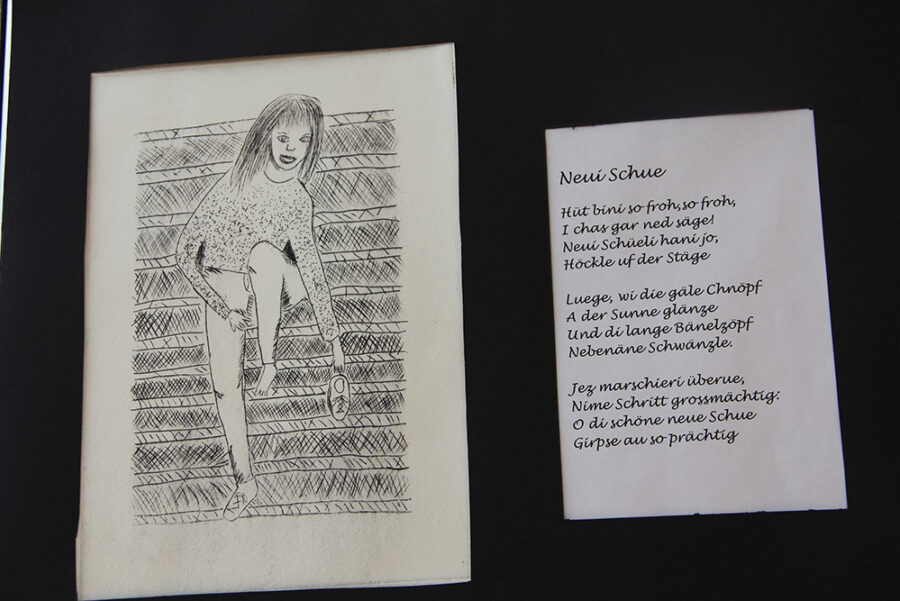 Neui Schue
Hüt bini so froh,so froh,
I chas gar ned säge!
Neui Schüeli hani jo,
Höckle uf der Stäge
Luege, wi die gäle Chnöpf
A der Sunne glänze
Und di lange Bänelzöpf
Nebenäne Schwänzle.
Jez marschieri überue,
Nime Schritt grossmächtig:
O di schöne neue Schue
Girpse au so prächtig